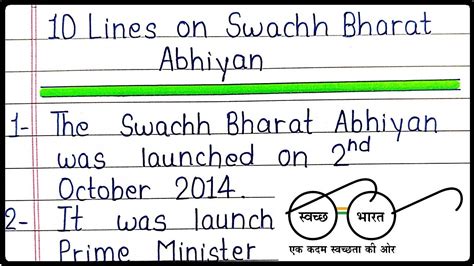 10 Lines on Swachh Bharat
Abhiyan
1- The Swachh Bharat Abhiyan
was launched on 2nd
October 2014.
2- It was launch
Prime Minister
स्वच्छ भारत
एक कदम स्वच्छता की ओर